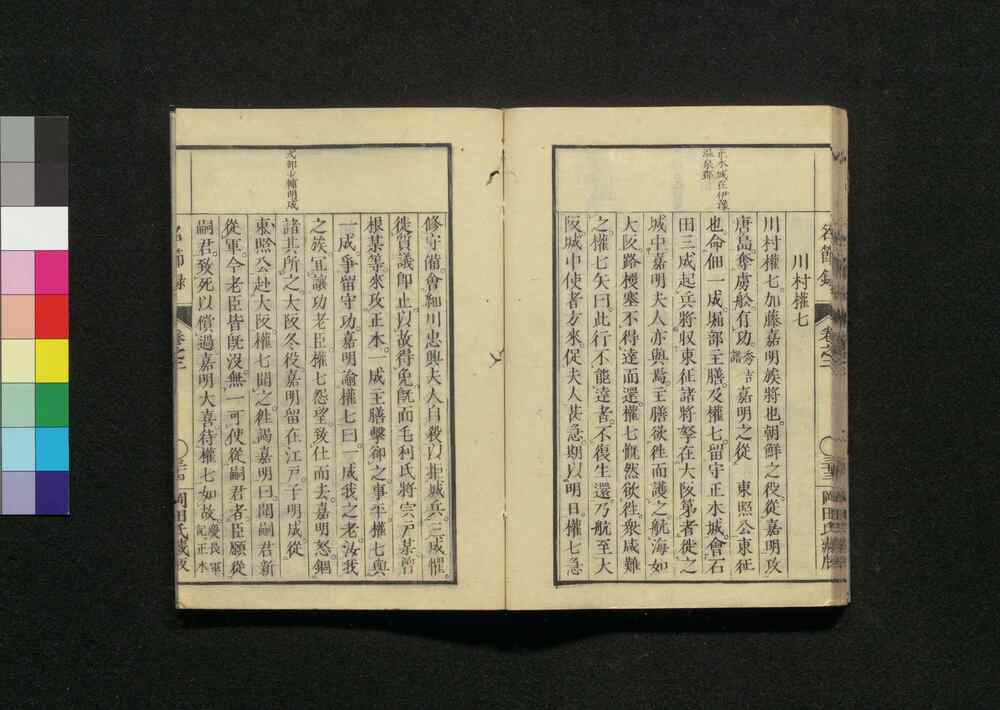 正木城在伊豫
温泉郡
川村權七
川村權七。加藤嘉明族將也。朝鮮之役。從嘉明攻
唐島奪虜舩。有功。秀吉譜嘉明之從 東照公東征
也。命佃一成堀部主膳。及權七。留守正木城。會石
田三成起兵。將収東征諸將孥在大阪第者。徙之
城中。嘉明夫人亦與焉。主膳欲往而護之。航海如
大阪。路梗塞不得達而還。權七慨然欲往。衆咸難
之。權七矢曰。此行不能達者。不復生還。乃航至大
阪。城中使者方來。促夫人甚急。期以明日。權七急
式部少輔明成
修守備。會細川忠興夫人自殺。以拒城兵。三成懼。
徙質議卽止。以故得免。旣而毛利氏將宍戸某曾
根某等來攻正木。一成主膳擊卻之。事平。權七與
一成。爭留守功。嘉明諭權七曰。一成我之老。汝我
之族。宜讓功老臣。權七怨望。致仕而去。嘉明怒。錮
諸其所之。大阪冬役。嘉明留在江戸。子明成從
東照公赴大阪。權七聞之。往謁嘉明曰。聞嗣君新
從軍。今老臣皆旣沒。無一可使從嗣君者。臣願從
嗣君。致死以償過。嘉明大喜。待權七如故。慶長軍記正木
名節録
卷之三
岡田氏藏版